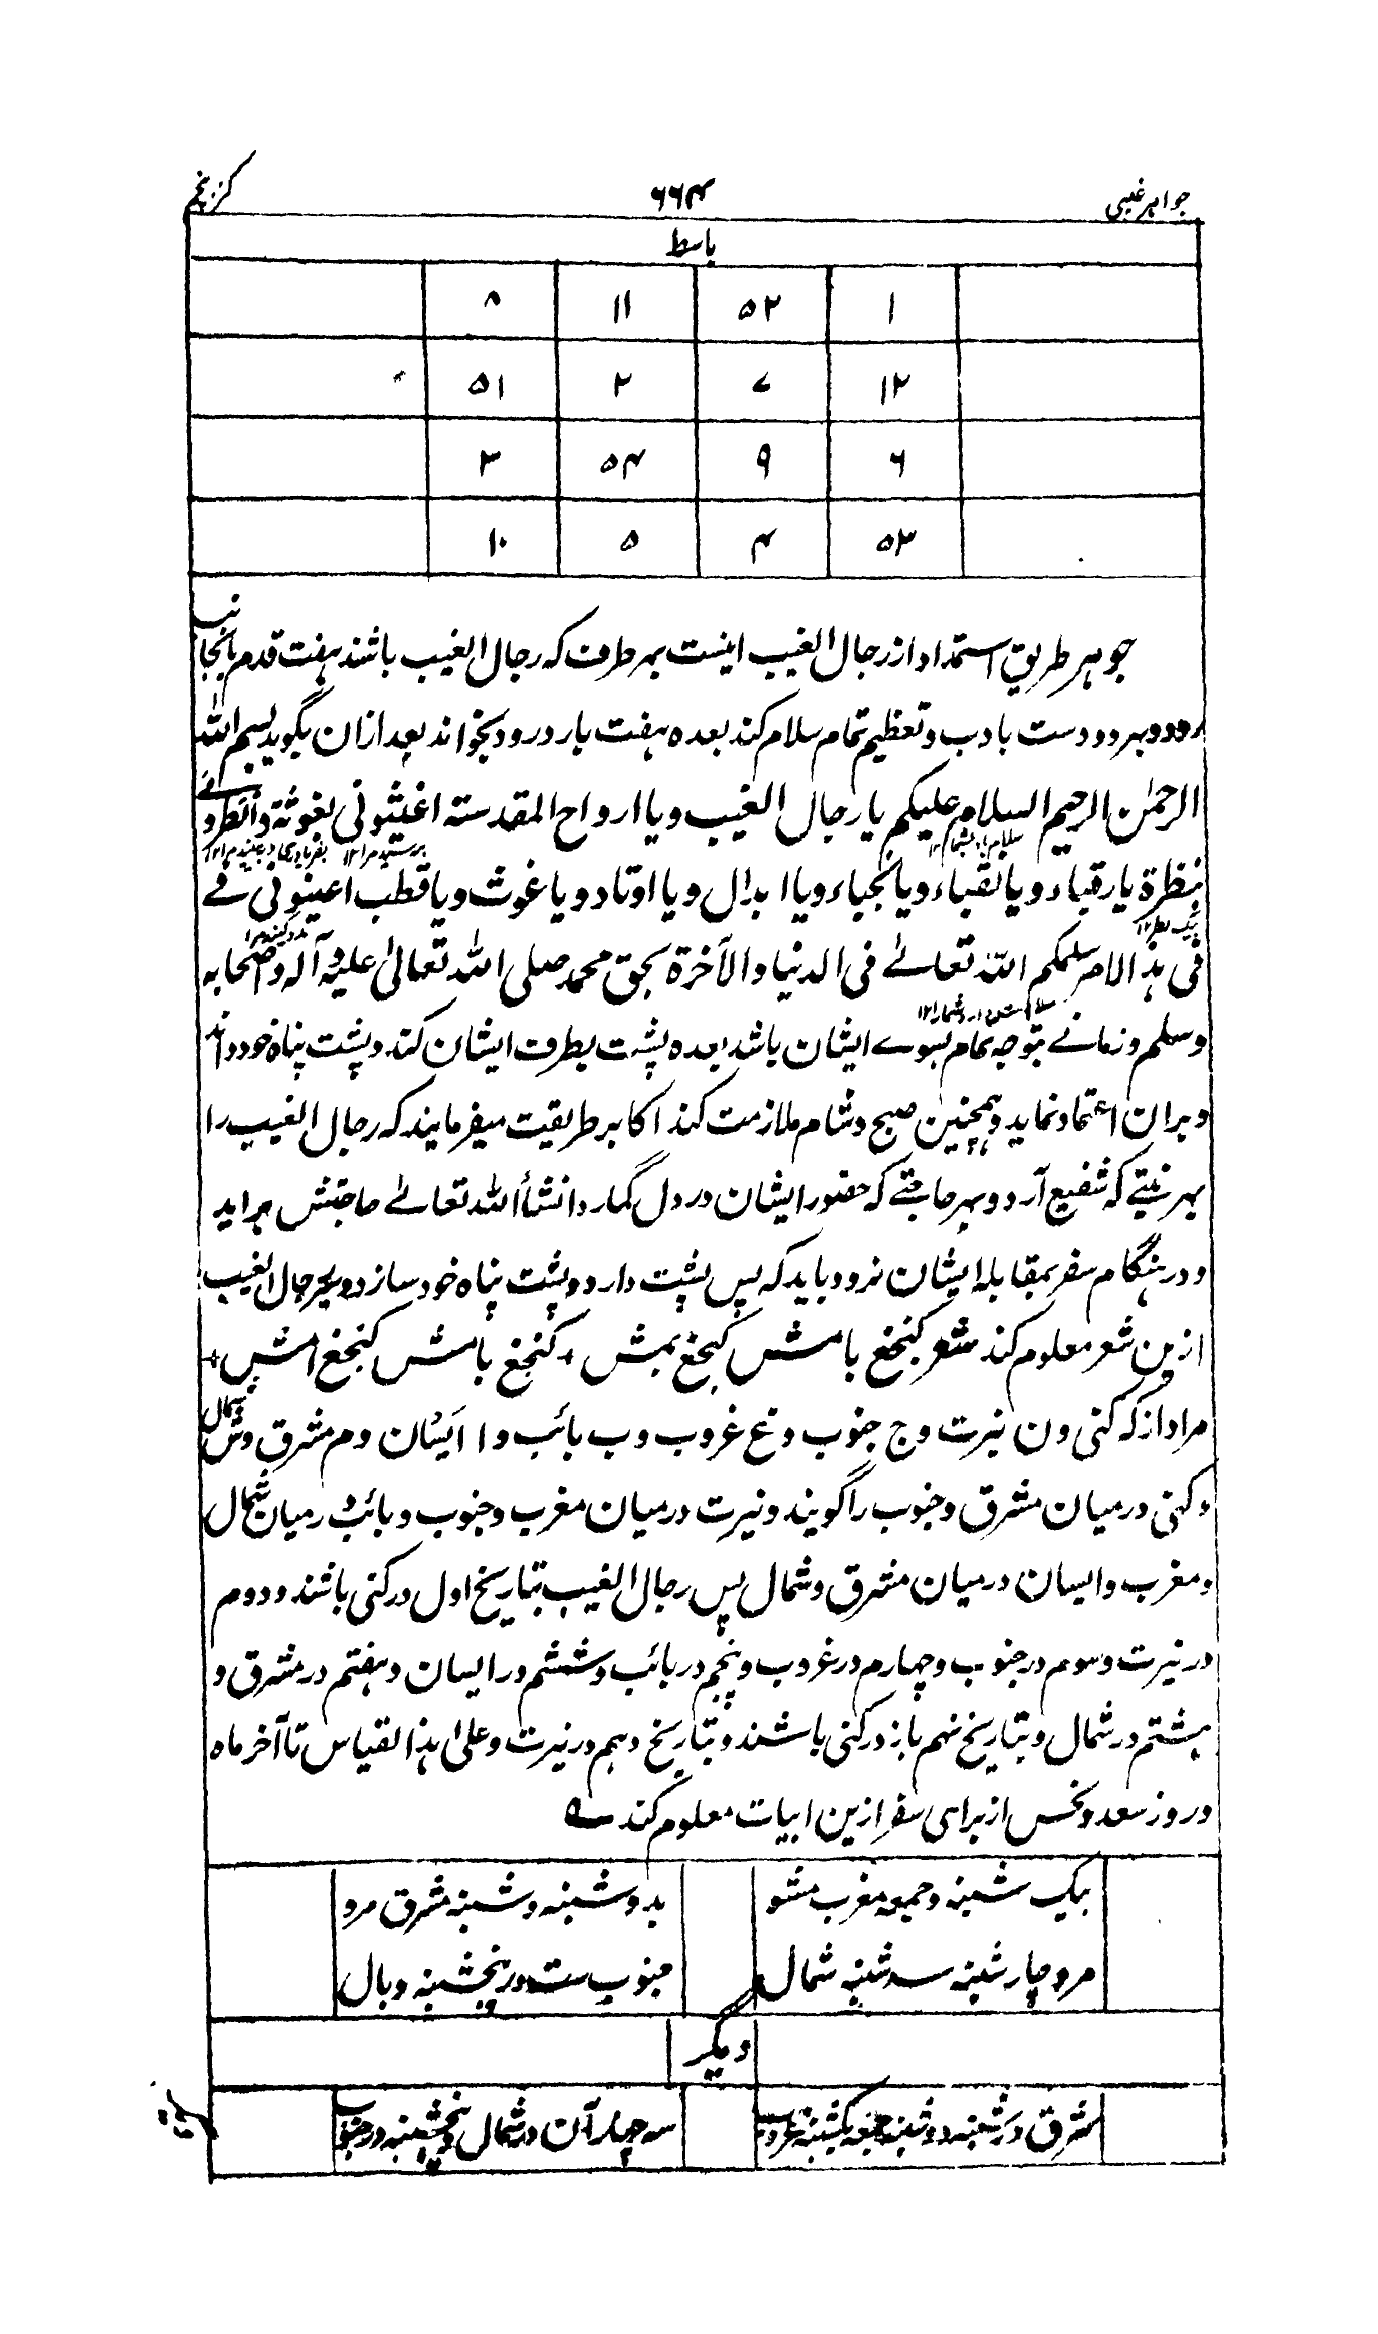 جواہر غیبی ۶۶۴ کنز پنجم
باسط
۱ ۵۲ ۱۱ ۸
۱۲ ۷ ۲ ۵۱
۶ ۹ ۵۴ ۳
۵۳ ۴ ۵ ۱۰
جوہر طریق استمداد از رجال الغیب اینست بہر طرف کہ رجال الغیب باشند ہفت قدم بانجانب
رود و ہر دو دست بادب و تعظیم تمام سلام کند بعدہ ہفت بار درود بخواند بعد ازان بگوید بسم اللہ
الرحمٰن الرحیم السلام علیکم یا رجال الغیب و یا ارواح المقدستہ اغیثونی بغوثة و انظرونے
بنظرة یا رقباء و یا نقباء و یا نجباء و یا ابدال و یا اوتاد و یا غوث و یا قطب اعینونی فے
فی ہذا الامر سلمکم اللہ تعالے فی الدنیا والآخرة بحق محمد صلی اللہ تعالیٰ علیہ و آلہ و اصحابہ
وسلم و زمانے متوجہ تمام بسوے ایشان باشد بعدہ پشت بطرف ایشان کند و پشت پناہ خود داند
و بران اعتماد نماید و ہمچنین صبح و شام ملازمت کند اکابر طریقت میفرمایند کہ رجال الغیب را
بہر نیتے کہ شفیع آرد و بہر حاجتے کہ حضور ایشان در دل گمارد انشأ اللہ تعالے حاجتش براید
و در ہنگام سفر بمقابلہ ایشان نرود باید کہ پس پشت دارد و پشت پناہ خود سازد و سیر رجال الغیب
ازین شعر معلوم کند شعر کنجغ بامش کنجغ بمش + کنجغ بامش کنجغ امش +
مراد از ک کنی و ن نیرت و ج جنوب و غ غروب و ب بائب و ا ایسان و م مشرق و ش شمال
و کنی درمیان مشرق و جنوب را گویند و نیرت درمیان مغرب و جنوب و بائب درمیان شمال
و مغرب و ایسان درمیان مشرق و شمال پس رجال الغیب بتاریخ اول در کنی باشند و دوم
در نیرت و سوم در جنوب و چہارم در غروب و پنجم در بائب و ششم در ایسان و ہفتم در مشرق و
ہشتم در شمال و بتاریخ نہم باز در کنی باشند و بتاریخ دہم در نیرت و علی ہذا القیاس تا آخر ماہ
و روز سعد و نحس از برای سفر ازین ابیات معلوم کند
بیک شنبہ و جمعہ مغرب مشو بدوشنبہ و شنبہ مشرق مرو
مرو چار شنبہ سہ شنبہ شمال جنوب ست در پنجشنبہ وبال
دیگر
شرق در شنبہ دوشنبہ جمعہ یکشنبہ غروب سہ چہار آن در شمال و پنجشنبہ در جنوب